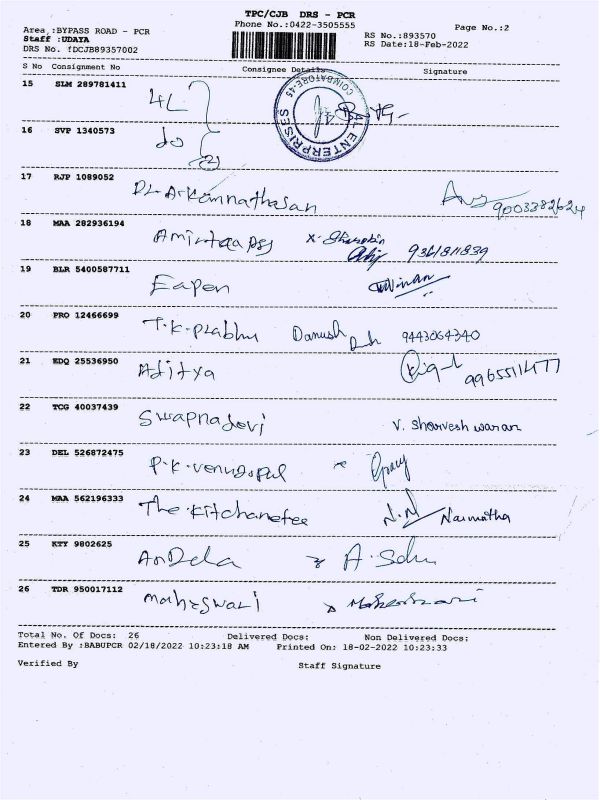 TPC/CJB DRS - PCR
Phone No.:0422-3505555
Page No.:2
Area :BYPASS ROAD - PCR
Staff :UDAYA
DRS No. :DCJB89357002
RS No.:893570
RS Date:18-Feb-2022
S No Consignment No Consignee Details Signature
15 SLM 289781411
COIMBATORE-45
ENTERPRISES
16 SVP 1340573
do
(2)
17 RJP 1089052
9003382624
18 MAA 282936194
9361811839
19 BLR 5400587711
Eapen
20 PRO 12466699
T.K.Prabhu Danush 9443064340
21 EDQ 25536950
Aditya 9965511477
22 TCG 40037439
Swapnadevi V. Sharvesh waran
23 DEL 526872475
P.K.Venugopal
24 MAA 562196333
The Kitchanetee N.N Narmatha
25 KTY 9802625
26 TDR 950017112
Maheswari Maheshwari
Total No. Of Docs: 26 Delivered Docs: Non Delivered Docs:
Entered By :BABUPCR 02/18/2022 10:23:18 AM Printed On: 18-02-2022 10:23:33
Verified By Staff Signature